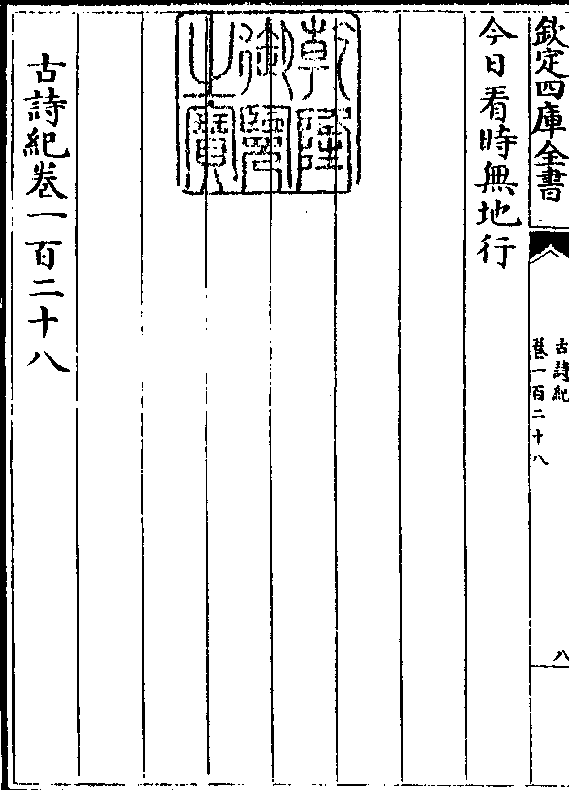 欽定四庫全書
古詩紀
卷一百二十八
八
今日看時無地行
乾隆御覽之寶
古詩紀卷一百二十八